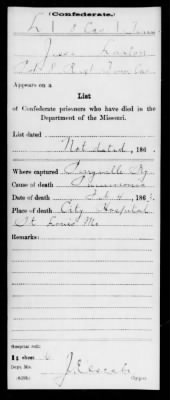 (Confederate.)
L | 8 Cav | Tenn
Jesse
Appears on a
List
of Confederate prisoners who have died in the
Department of the Missouri.
List dated
Not dated, 186 .
Where captured Perryville Ky.
Cause of death Pneumonia
Date of death Feb 4, 1863.
Place of death City Hospital
St Louis Mo
Remarks:
Hospital roll:
sheet 6
Dept. Mo.
Copyist.